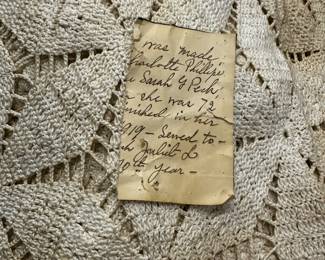 was made
Charlotte Phillips
Sarah G Peck
she was 72
finished in her
1919 – Sewed to –
Juliet L
0th year –